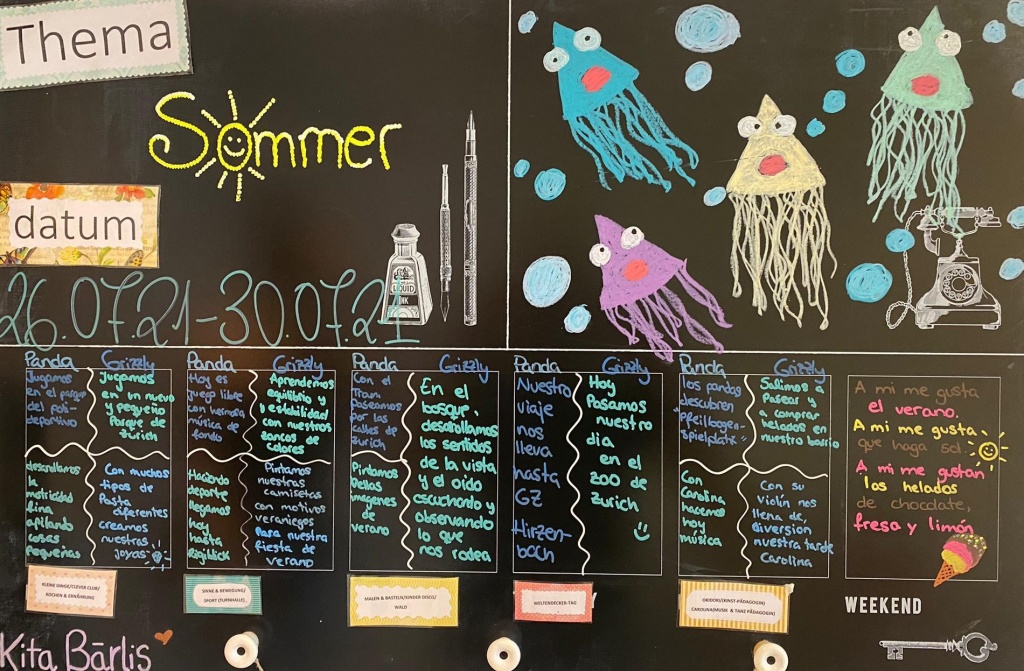 Thema
Sommer
datum
26.07.21-30.07.21
LIQUID
INK
Panda
Jugamos
en el parque
del poli-
deportivo
desarollamos
la
motricidad
fina
apilando
cosas
pequeñas
Grizzly
Jugamos
en un nuevo
y pequeño
Parque de
Zurich
Con muchos
tipos de
Pasta
diferentes
creamos
nuestras
joyas
KLEINE DINGE/CLEVER CLUB/
KOCHEN & ERNÄHRUNG
Panda
Hoy es
juego libre
con hermosa
música de
fondo
Haciendo
deporte
llegamos
hoy
hasta
Rigiblick
Grizzly
Aprendemos
equilibrio y
estabilidad
con nuestros
zancos de
colores
Pintamos
nuestras
camisetas
con motivos
veraniegos
para nuestra
fiesta de
verano
SINNE & BEWEGUNG/
SPORT (TURNHALLE)
Panda
Con el
Tram
Paseamos
por las
calles de
Zurich
Pintamos
Bellas
imagenes
de
verano
Grizzly
En el
bosque,
desarollamos
los sentidos
de la vista
y el oído
escuchando y
observando
lo que
nos rodea
MALEN & BASTELN/KINDER DISCO/
WALD
Panda
Nuestro
viaje
nos
lleva
hasta
GZ
Hirzen-
bach
Grizzly
Hoy
Pasamos
nuestro
dia
en el
zoo de
Zurich
WELTENDECKER-TAG
Panda
los pandas
descubren
"Pfeilbogen-
spielplatz"
Con
Carolina
hacemos
hoy
música
Grizzly
Salimos a
Pasear y
a comprar
helados en
nuestro barrio
Con su
violín nos
llena de
diversion
nuestra tarde
Carolina
CAROLINA(MUSIK & TANZ PÄDAGOGIN)
A mi me gusta
el verano.
A mi me gusta
que haga sol.
A mi me gustan
los helados
de chocolate,
fresa y limón
WEEKEND
Kita Bärlis